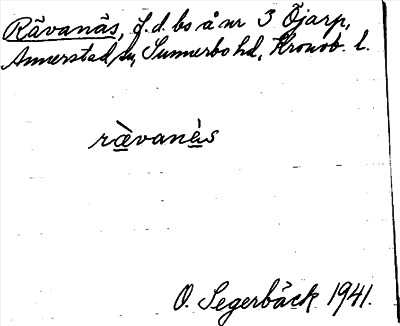 Rävanäs, f.d. bo å nr 3 Öjarp,
Annerstad sn, Sunnerbo hd, Kronob. l.
rä̀vanä̀s
O. Segerbäck 1941.